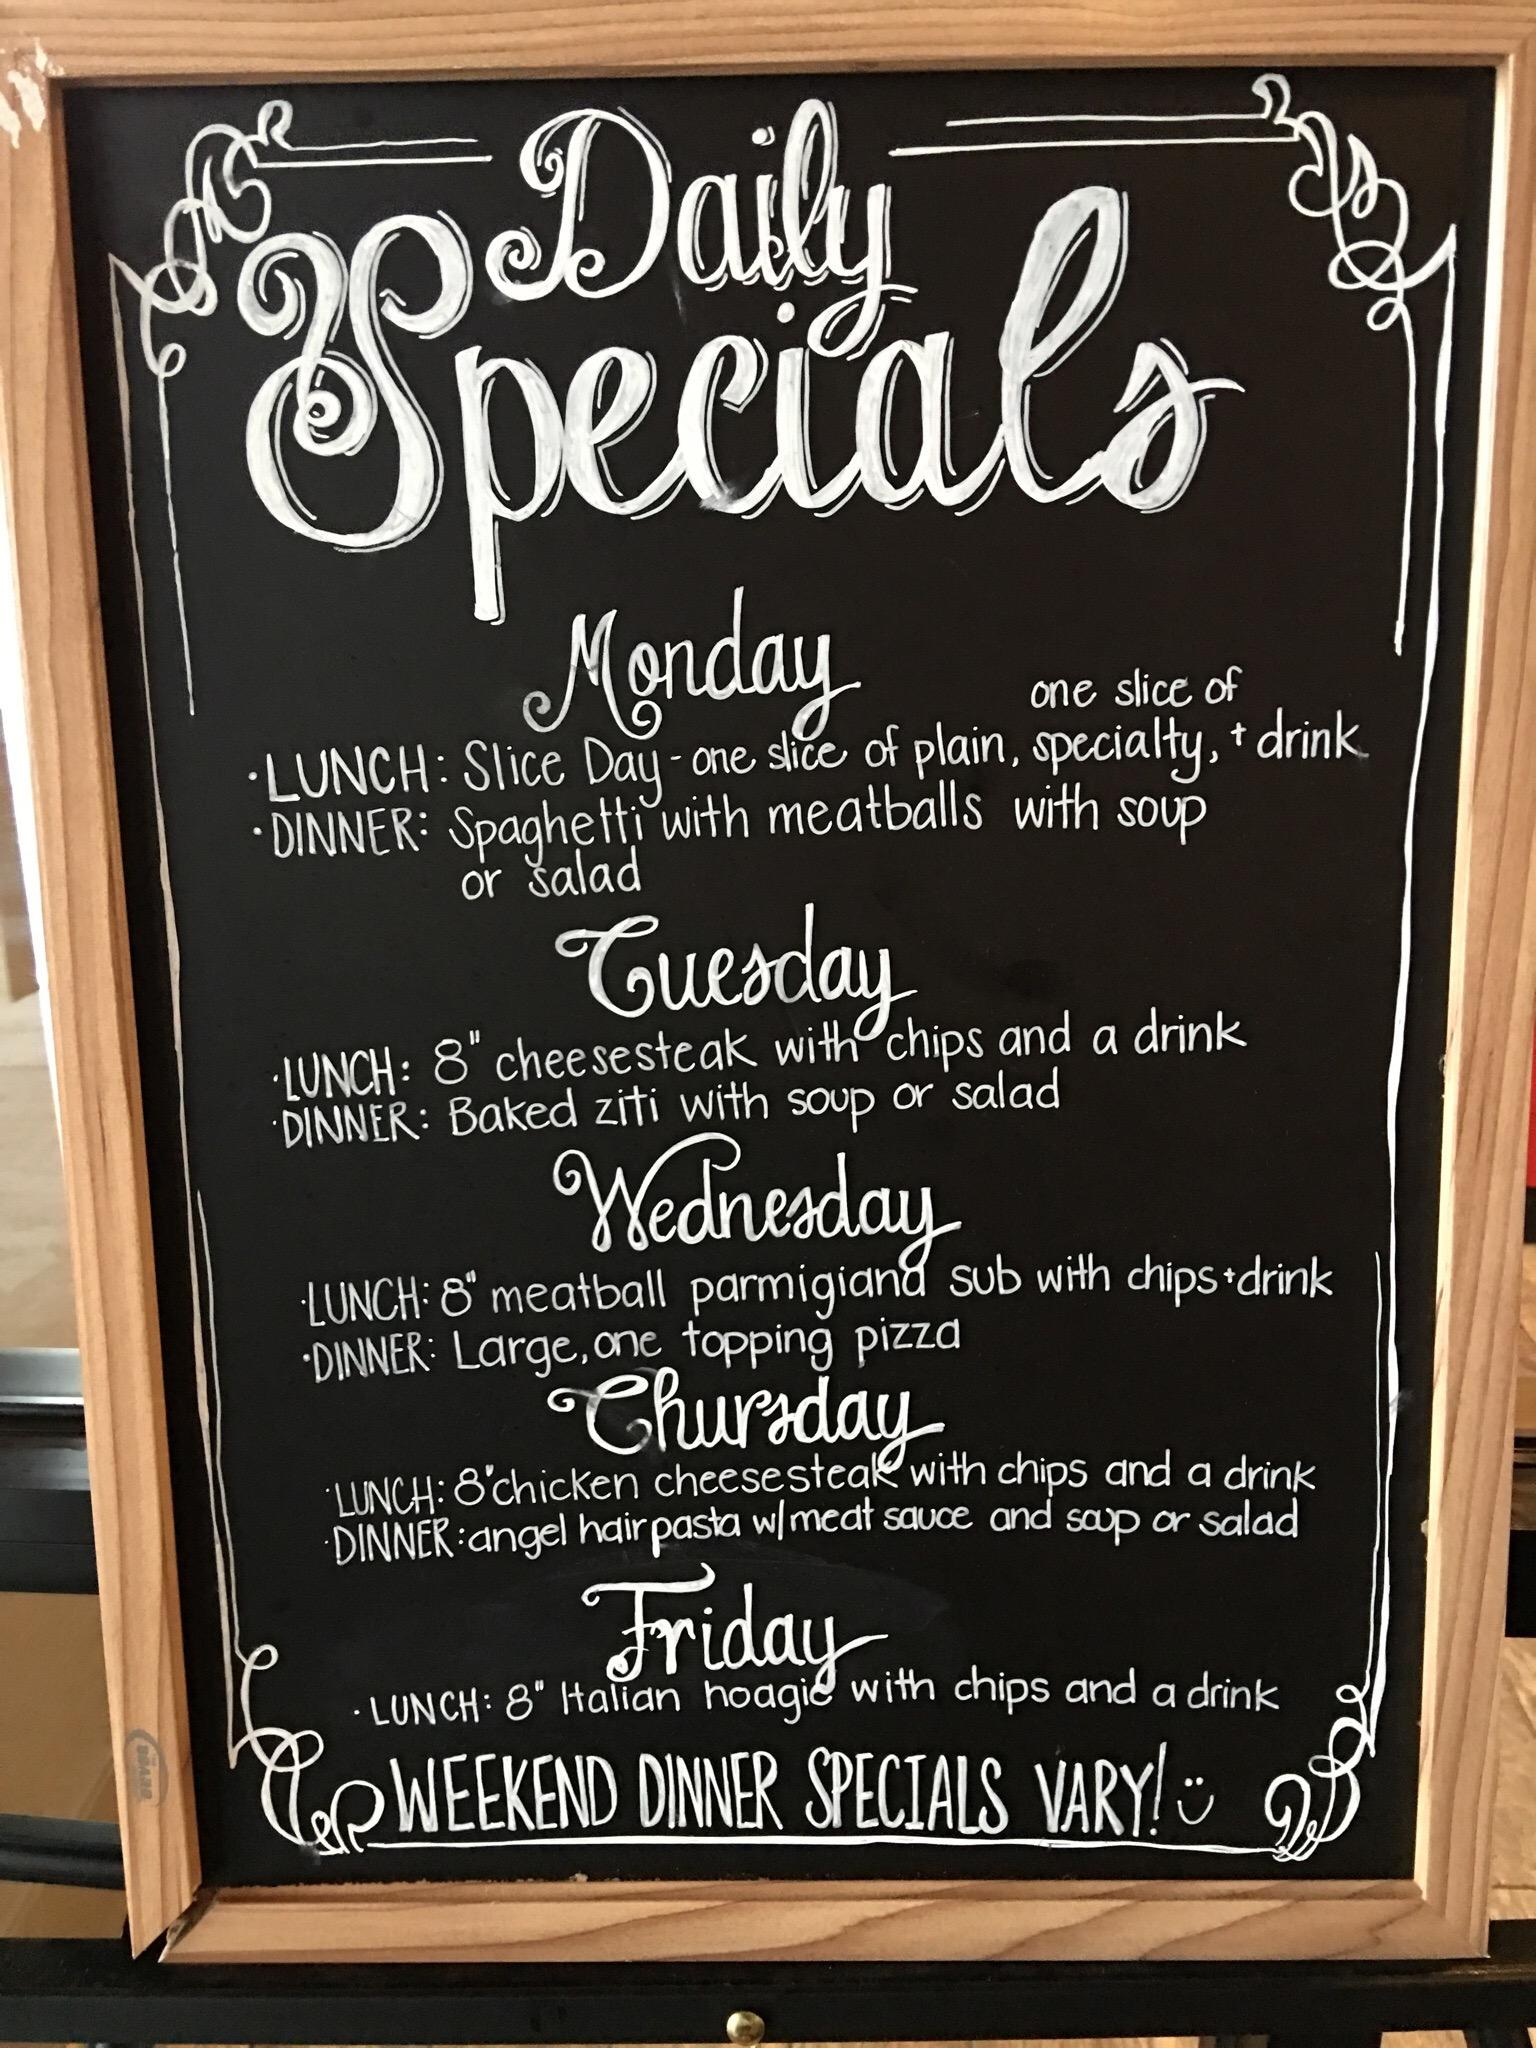 Daily
Specials
Monday
one slice of
·LUNCH: Slice Day - one slice of plain, specialty, + drink
·DINNER: Spaghetti with meatballs with soup
or salad
Tuesday
·LUNCH: 8" cheesesteak with chips and a drink
·DINNER: Baked ziti with soup or salad
Wednesday
·LUNCH: 8" meatball parmigiana sub with chips + drink
·DINNER: Large, one topping pizza
Thursday
·LUNCH: 8" chicken cheesesteak with chips and a drink
·DINNER: angel hair pasta w/ meat sauce and soup or salad
Friday
·LUNCH: 8" Italian hoagie with chips and a drink
WEEKEND DINNER SPECIALS VARY! :)